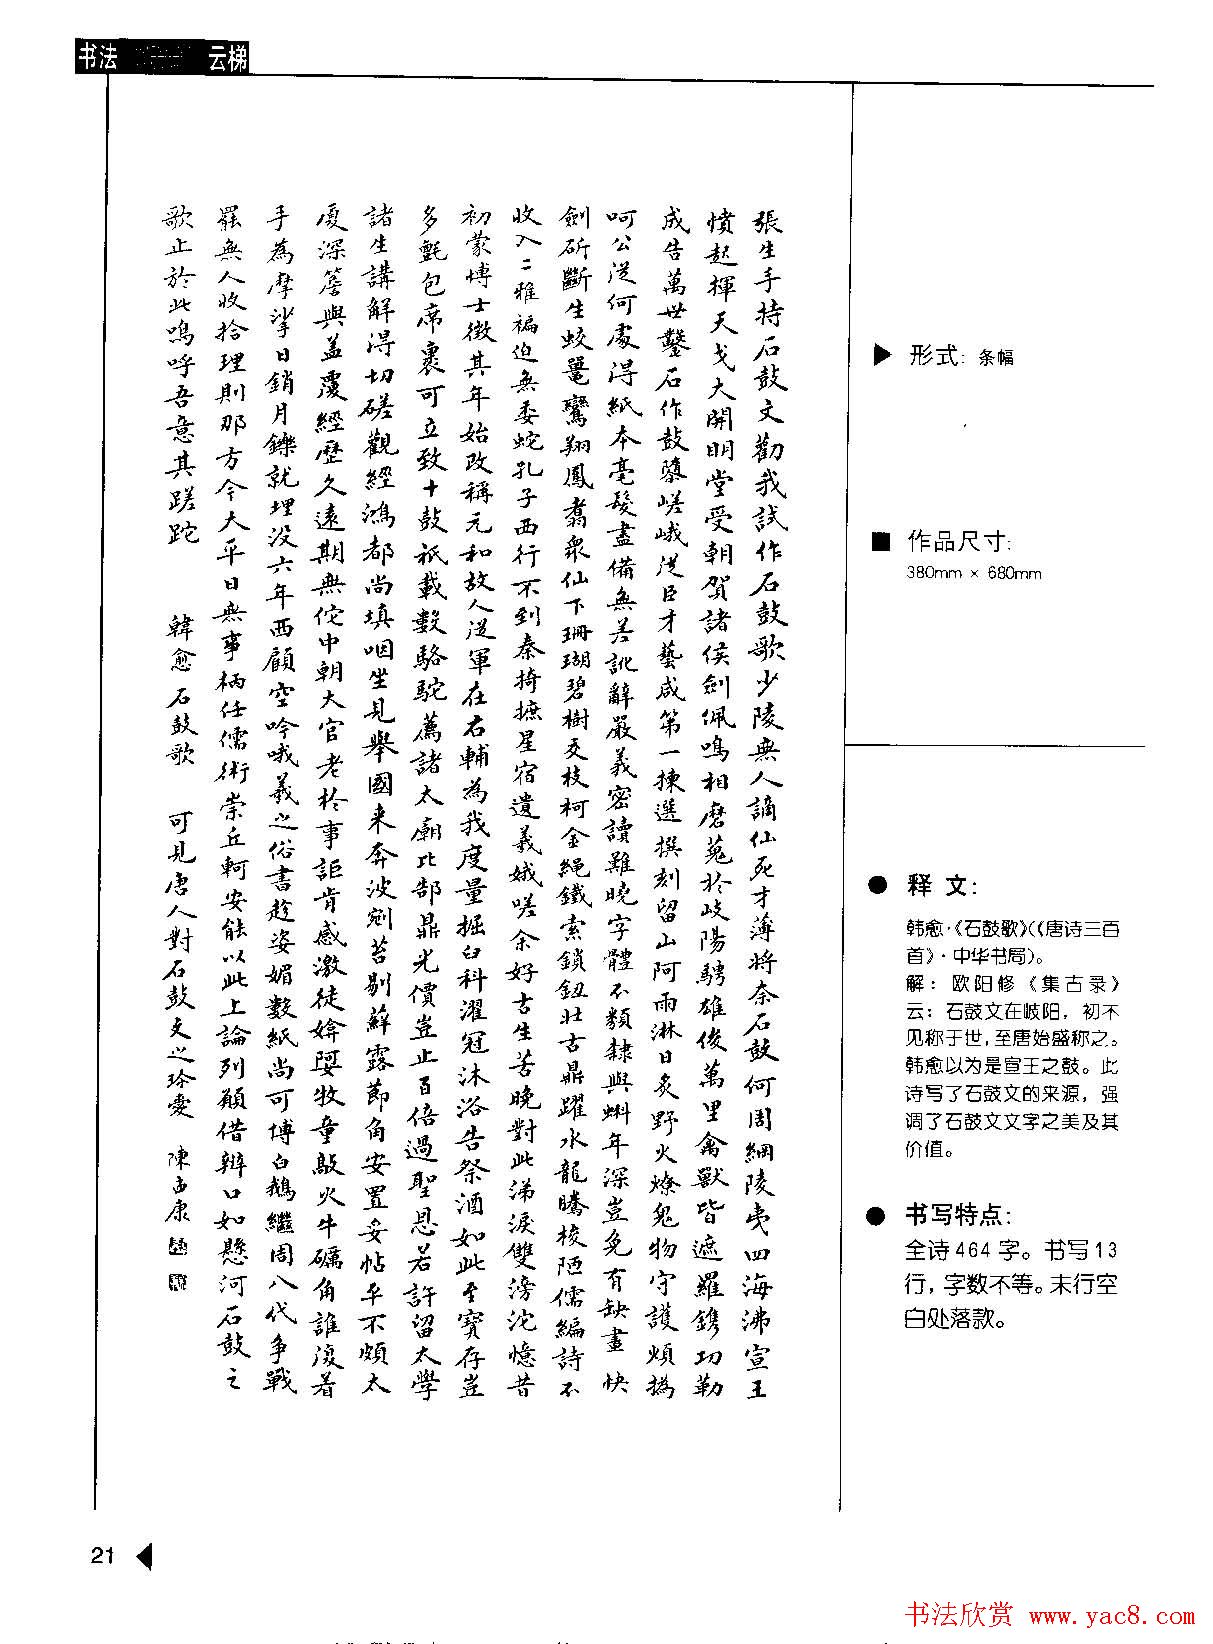 书法
云梯
張生手持石鼓文勸我試作石鼓歌少陵無人謫仙死才薄將奈石鼓何周綱陵夷四海沸宣王
憤起揮天戈大開明堂受朝賀諸侯劍佩鳴相磨蒐於岐陽騁雄俊萬里禽獸皆遮羅鐫功勒
成告萬世鑿石作鼓隳嵯峨從臣才藝咸第一揀選撰刻留山阿雨淋日炙野火燎鬼物守護煩撝
呵公從何處得紙本毫髮盡備無差訛辭嚴義密讀難曉字體不類隸與蝌年深豈免有缺畫快
劍斫斷生蛟鼉鸞翔鳳翥眾仙下珊瑚碧樹交枝柯金繩鐵索鎖鈕壯古鼎躍水龍騰梭陋儒編詩不
收入二雅褊迫無委蛇孔子西行不到秦掎摭星宿遺羲娥嗟余好古生苦晚對此涕淚雙滂沱憶昔
初蒙博士徵其年始改稱元和故人從軍在右輔為我度量掘臼科濯冠沐浴告祭酒如此至寶存豈
多氈包席裹可立致十鼓祇載數駱駝薦諸太廟比郜鼎光價豈止百倍過聖恩若許留太學
諸生講解得切磋觀經鴻都尚填咽坐見舉國来奔波剜苔剔蘚露節角安置妥帖平不頗太
廈深簷與蓋覆經歷久遠期無佗中朝大官老於事詎肯感激徒媕婀牧童敲火牛礪角誰復着
手為摩挲日銷月鑠就埋没六年西顧空吟哦羲之俗書趁姿媚數紙尚可博白鵝繼周八代争戰
罷無人收拾理則那方今太平日無事柄任儒術崇丘軻安能以此上論列願借辨口如懸河石鼓之
歌止於此嗚呼吾意其蹉跎 韓愈石鼓歌 可見唐人對石鼓文之珍愛 陳
▶ 形式: 条幅
■ 作品尺寸:
380mm × 680mm
● 释文:
韩愈·《石鼓歌》(《唐诗三百
首》·中华书局)。
解：欧阳修《集古录》
云：石鼓文在岐阳，初不
见称于世，至唐始盛称之。
韩愈以为是宣王之鼓。此
诗写了石鼓文的来源，强
调了石鼓文文字之美及其
价值。
● 书写特点:
全诗464字。书写13
行，字数不等。末行空
白处落款。
21
书法欣赏 www.yac8.com